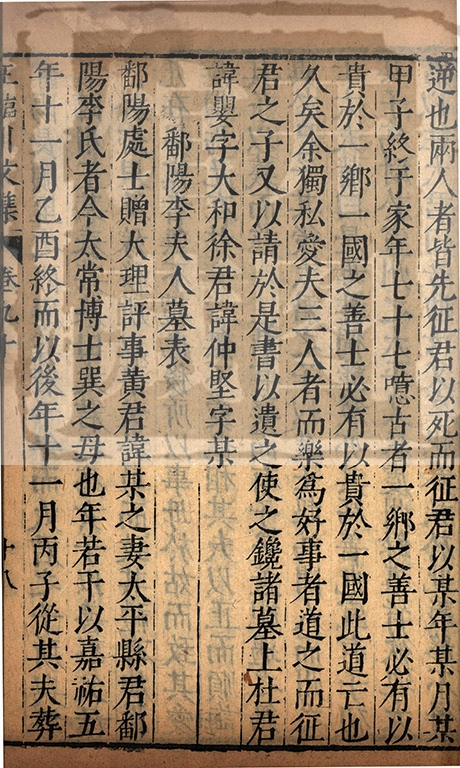 逆也兩人者皆先征君以死而征君以某年某月某
甲子終于家年七十七噫古者一鄉之善士必有以
貴於一鄉一國之善士必有以貴於一國此道亡也
久矣余獨私愛夫三人者而樂爲好事者道之而征
君之子又以請於是書以遺之使之鑱諸墓上杜君
諱嬰字大和徐君諱仲堅字某
鄱陽李夫人墓表
鄱陽處士贈大理評事黃君諱某之妻太平縣君鄱
陽李氏者今太常博士巽之母也年若干以嘉祐五
年十一月乙酉終而以後年十一月丙子從其夫葬
王臨川文集 卷九十 十八